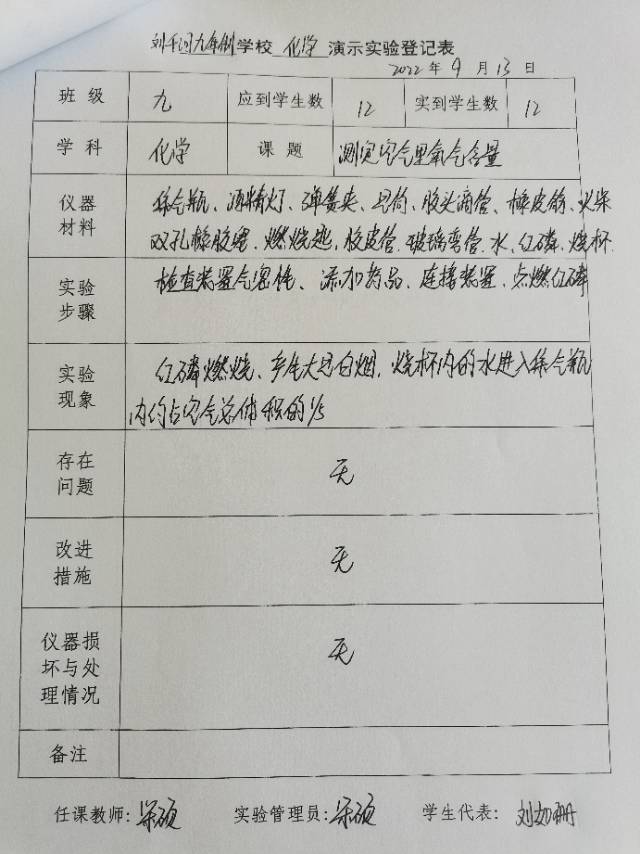 刘千河九年制学校 化学 演示实验登记表
2022年9月13日
班级 九 应到学生数 12 实到学生数 12
学科 化学 课题 测定空气里氧气含量
仪器材料 集气瓶、酒精灯、弹簧夹、量筒、胶头滴管、橡皮筋、火柴
双孔橡胶塞、燃烧匙、胶皮管、玻璃弯管、水、红磷、烧杯
实验步骤 检查装置气密性、添加药品、连接装置、点燃红磷
实验现象 红磷燃烧、产生大量白烟,烧杯内的水进入集气瓶
内约占空气总体积的1/5
存在问题 无
改进措施 无
仪器损坏与处理情况 无
备注
任课教师: 实验管理员: 学生代表: